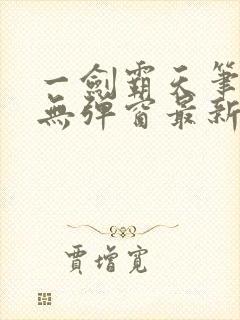 一劍霸天筆
無彈窗最新
賈增寬